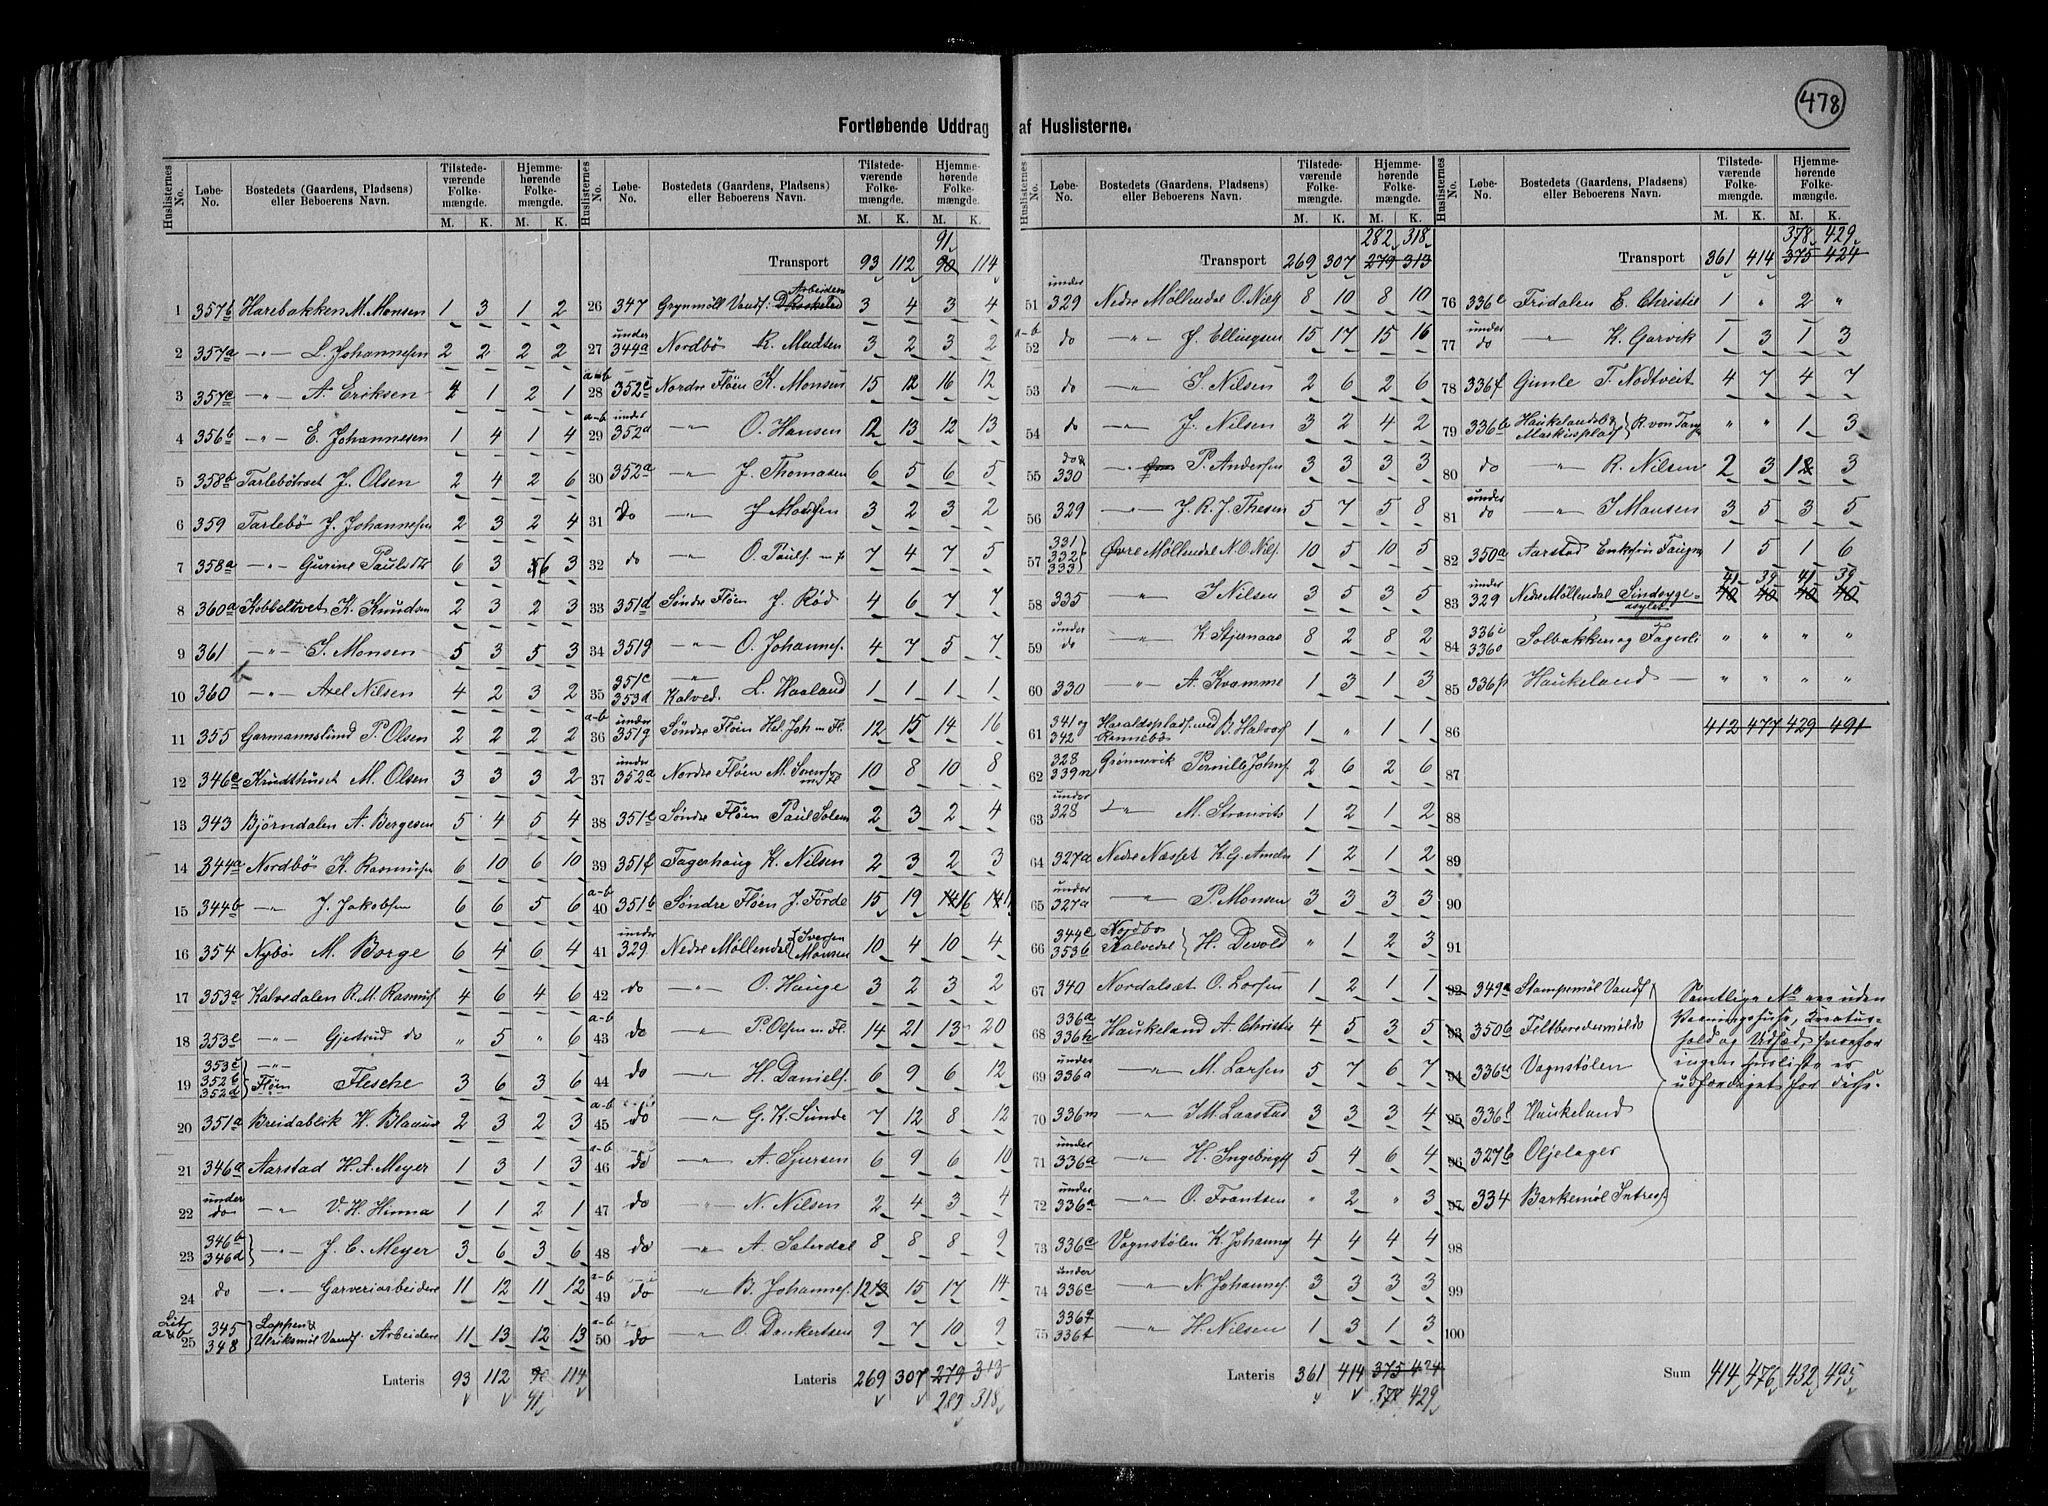 478
Fortløbende Uddrag af Huslisterne.
Huslisternes No. Løbe-No. Bostedets (Gaardens, Pladsens) eller Beboerens Navn. Tilstedeværende Folkemængde. M. K. Hjemmehørende Folkemængde. M. K.
1 357b Harebakken M. Monsen 1 3 1 2
2 357a -"- L. Johannesen 2 2 2 2
3 357c -"- A. Eriksen 2 1 2 1
4 356b -"- E. Johannesen 1 4 1 4
5 358b Tarlebötræet J. Olsen 2 4 2 6
6 359 Tarlebö J. Johannesen 2 3 2 4
7 358a -"- Gurine Paulsdtr 6 3 6 3
8 360a Kobbeltvet K. Knudsen 2 3 2 3
9 361 -"- S. Monsen 5 3 5 3
10 360b -"- Axel Nilsen 4 2 3 2
11 355 Garmannslund P. Olsen 2 2 2 2
12 346c Krudthuset M. Olsen 3 3 3 2
13 343 Björndalen A. Bergesen 5 4 5 4
14 344a Nordbö K. Rasmusen 6 10 6 10
15 344b -"- J. Jakobsen 6 6 5 6
16 354 Nybö M. Borge 6 4 6 4
17 353a Kalvedalen R. M. Rasmus. 4 6 4 6
18 353e -"- Gjertrud do " 5 " 6
19 353c 352b 352d } -"- Flöen Flesche 3 6 3 6
20 351a Breidablik W. Blaauw 2 3 2 3
21 346a Aarstad H. A. Meyer 1 3 1 3
22 under do -"- V. H. Hinna 1 1 2 1
23 346b 346d } -"- J. C. Meyer 3 6 3 6
24 do -"- Garveriarbeidere 11 12 11 12
Litr a & b 25 345 348 { Lappen & Ulriksmöl Vandf. Arbeidere 11 13 12 13
Lateris 93 112 90 114
91
Huslisternes No. Løbe-No. Bostedets (Gaardens, Pladsens) eller Beboerens Navn. Tilstedeværende Folkemængde. M. K. Hjemmehørende Folkemængde. M. K.
91
Transport 93 112 90 114
26 347 Grynmöll Vandf. Arbeidere 3 4 3 4
27 under 344a Nordbö K. Madsen 3 2 3 2
a-b 28 352c Nordre Flöen K. Monsen 15 12 16 12
a-b 29 under 352d -"- O. Hansen 12 13 12 13
30 352a -"- J. Thomasen 6 5 6 5
31 do -"- J. Madsen 3 2 3 2
32 do -"- O. Pauls. m fl 7 4 7 5
33 351d Søndre Flöen J. Röd 4 6 7 7
34 351g -"- O. Johannes. 4 7 5 7
35 351c 353d -"- Kalved. L. Haaland 1 1 1 1
a-b 36 under 351g Søndre Flöen Hel. Joh m Fl. 12 15 14 16
37 under 352a Nordre Flöen M. Sørens m fl 10 8 10 8
38 351e Søndre Flöen Paul Solem 2 3 2 4
39 351f Fagerhaug K. Nilsen 2 3 2 3
a-b 40 351b Søndre Flöen J. Förde 15 19 16
41 under 329 Nedre Möllendal { Iversen Monsen 10 4 10 4
42 do -"- O. Hauge 3 2 3 2
a-b 43 do -"- P. Olsen m Fl. 14 21 13 20
44 do -"- H. Daniels. 6 9 6 12
a-b 45 do -"- G. K. Sunde 7 12 8 12
a-b 46 do -"- A. Sjursen 6 9 6 10
47 do -"- N. Nilsen 2 4 3 4
48 do -"- A. Saterdal 8 8 8 9
a-b 49 do -"- B. Johannes. 12 15 17 14
a-b 50 do -"- O. Dankertsen 9 7 10 9
Lateris 269 307 279 313
282 318
Huslisternes No. Løbe-No. Bostedets (Gaardens, Pladsens) eller Beboerens Navn. Tilstedeværende Folkemængde. M. K. Hjemmehørende Folkemængde. M. K.
282 318
Transport 269 307 279 313
51 under 329 Nedre Möllendal O. Nils. 8 10 8 10
a-b 52 do -"- J. Ellingsen 15 17 15 16
53 do -"- S. Nilsen 2 6 2 6
54 do -"- J. Nilsen 3 2 4 2
55 do & 330 -"- P. Andersen 3 3 3 3
56 329 -"- J. R. J. Thesen 5 7 5 8
57 331 332 333 } Øvre Möllendal N. O. Nils. 10 5 10 5
58 335 -"- S. Nilsen 3 5 3 5
59 under do -"- K. Stjernaas 8 2 8 2
60 330 -"- A. Kvamme 1 3 1 3
61 341 og 342 Haraldsplads ved Rennebö B. Halvors. 1 " 1 1
62 328 339n Grönnevik Pernille Johns. 2 6 2 6
63 under 328 -"- M. Stranvits 1 2 1 2
64 327a Nedre Næsset K. G. Ameln 1 2 1 2
65 under 327a -"- P. Monsen 3 3 3 3
66 344c 353b Nordbö Kalvedal } H. Devold " 1 2 3
67 340 Nordalsæt O. Larsen 1 2 1 1
68 336a 336h Haukeland A. Christie 4 5 3 5
69 under 336a -"- M. Larsen 5 7 6 7
70 336m -"- J. M. Laastad 3 3 3 4
71 under 336a -"- H. Ingebrigts. 5 4 6 4
72 under 336a -"- O. Frantsen " 2 " 3
73 336c Vognstölen K. Johannes. 4 4 4 4
74 under 336c -"- N. Johannes. 3 3 3 3
75 336q 336t -"- H. Nilsen 1 3 1 3
Lateris 361 414 375 424
378 429
Huslisternes No. Løbe-No. Bostedets (Gaardens, Pladsens) eller Beboerens Navn. Tilstedeværende Folkemængde. M. K. Hjemmehørende Folkemængde. M. K.
378 429
Transport 361 414 375 424
76 336e Fridalen E. Christie 1 " 2 "
77 under do -"- K. Garvik 1 3 1 3
78 336f Gimle T. Nodtveit 4 7 4 7
79 336b } R. von Tang " " 1 3
80 do -"- R. Nilsen 2 3 3
81 under do -"- S. Monsen 3 5 3 5
82 350a Aarstad 1 5 1 6
41 39 41 39
83 under 329 Nedre Möllendal Sindsygeasylet 40 40 40 40
84 336i 336o Solbakken og Fagerli " " " "
85 336p Haukeland — " " " "
86 412 477 429 491
87
88
89
90
91
92 349a Stampemöl Vandf.
93 350b Feltberedermölle
94 336u Vognstölen
95 336l Haukeland
96 327b Oljelager
97 334 Barkemöl Intress.
Samtlige No ere uden Bygningshuse, Kreaturhold og Udsæd, hvorfor ingen husliste er udfærdiget for disse.
98
99
100
Sum 414 476 432 495